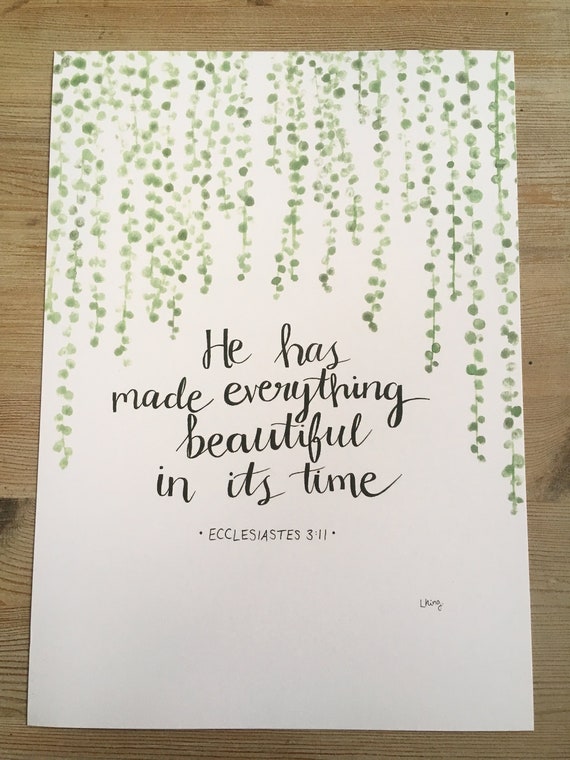 He has
made everything
beautiful
in its time
• ECCLESIASTES 3:11 •
LKing